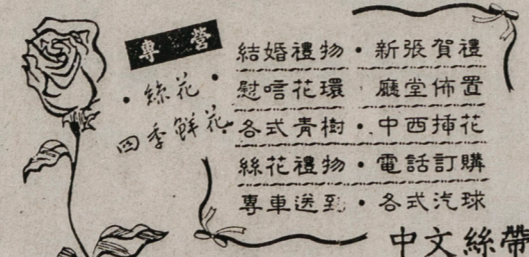 專營
•絲花•
四季鮮花
結婚禮物•新張賀禮
慰唁花環 廳堂佈置
各式青樹•中西揷花
絲花禮物•電話訂購
專車送到•各式汽球
中文絲帶